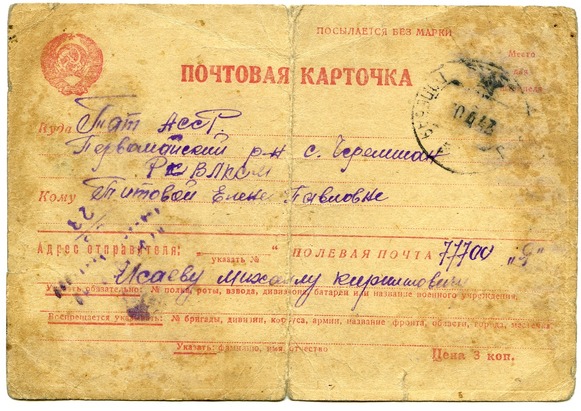 ПОСЫЛАЕТСЯ БЕЗ МАРКИ
Место
для
ПОЧТОВАЯ КАРТОЧКА
Куда Тат АССР
Первомайский р-н с. Черемшан
РК ВЛКСМ
Кому Титовой Елене Павловне
23
Адрес отправителя:
указать №
ПОЛЕВАЯ ПОЧТА 77700 "Я"
Исаеву Михаилу Кирилловичу
Указать обязательно: № полка, роты, взвода, дивизиона, батареи или название военного учреждения.
Воспрещается указывать: № бригады, дивизии, корпуса, армии, название фронта, области, города, местечка
Указать: фамилию, имя, отчество
Цена 3 коп.